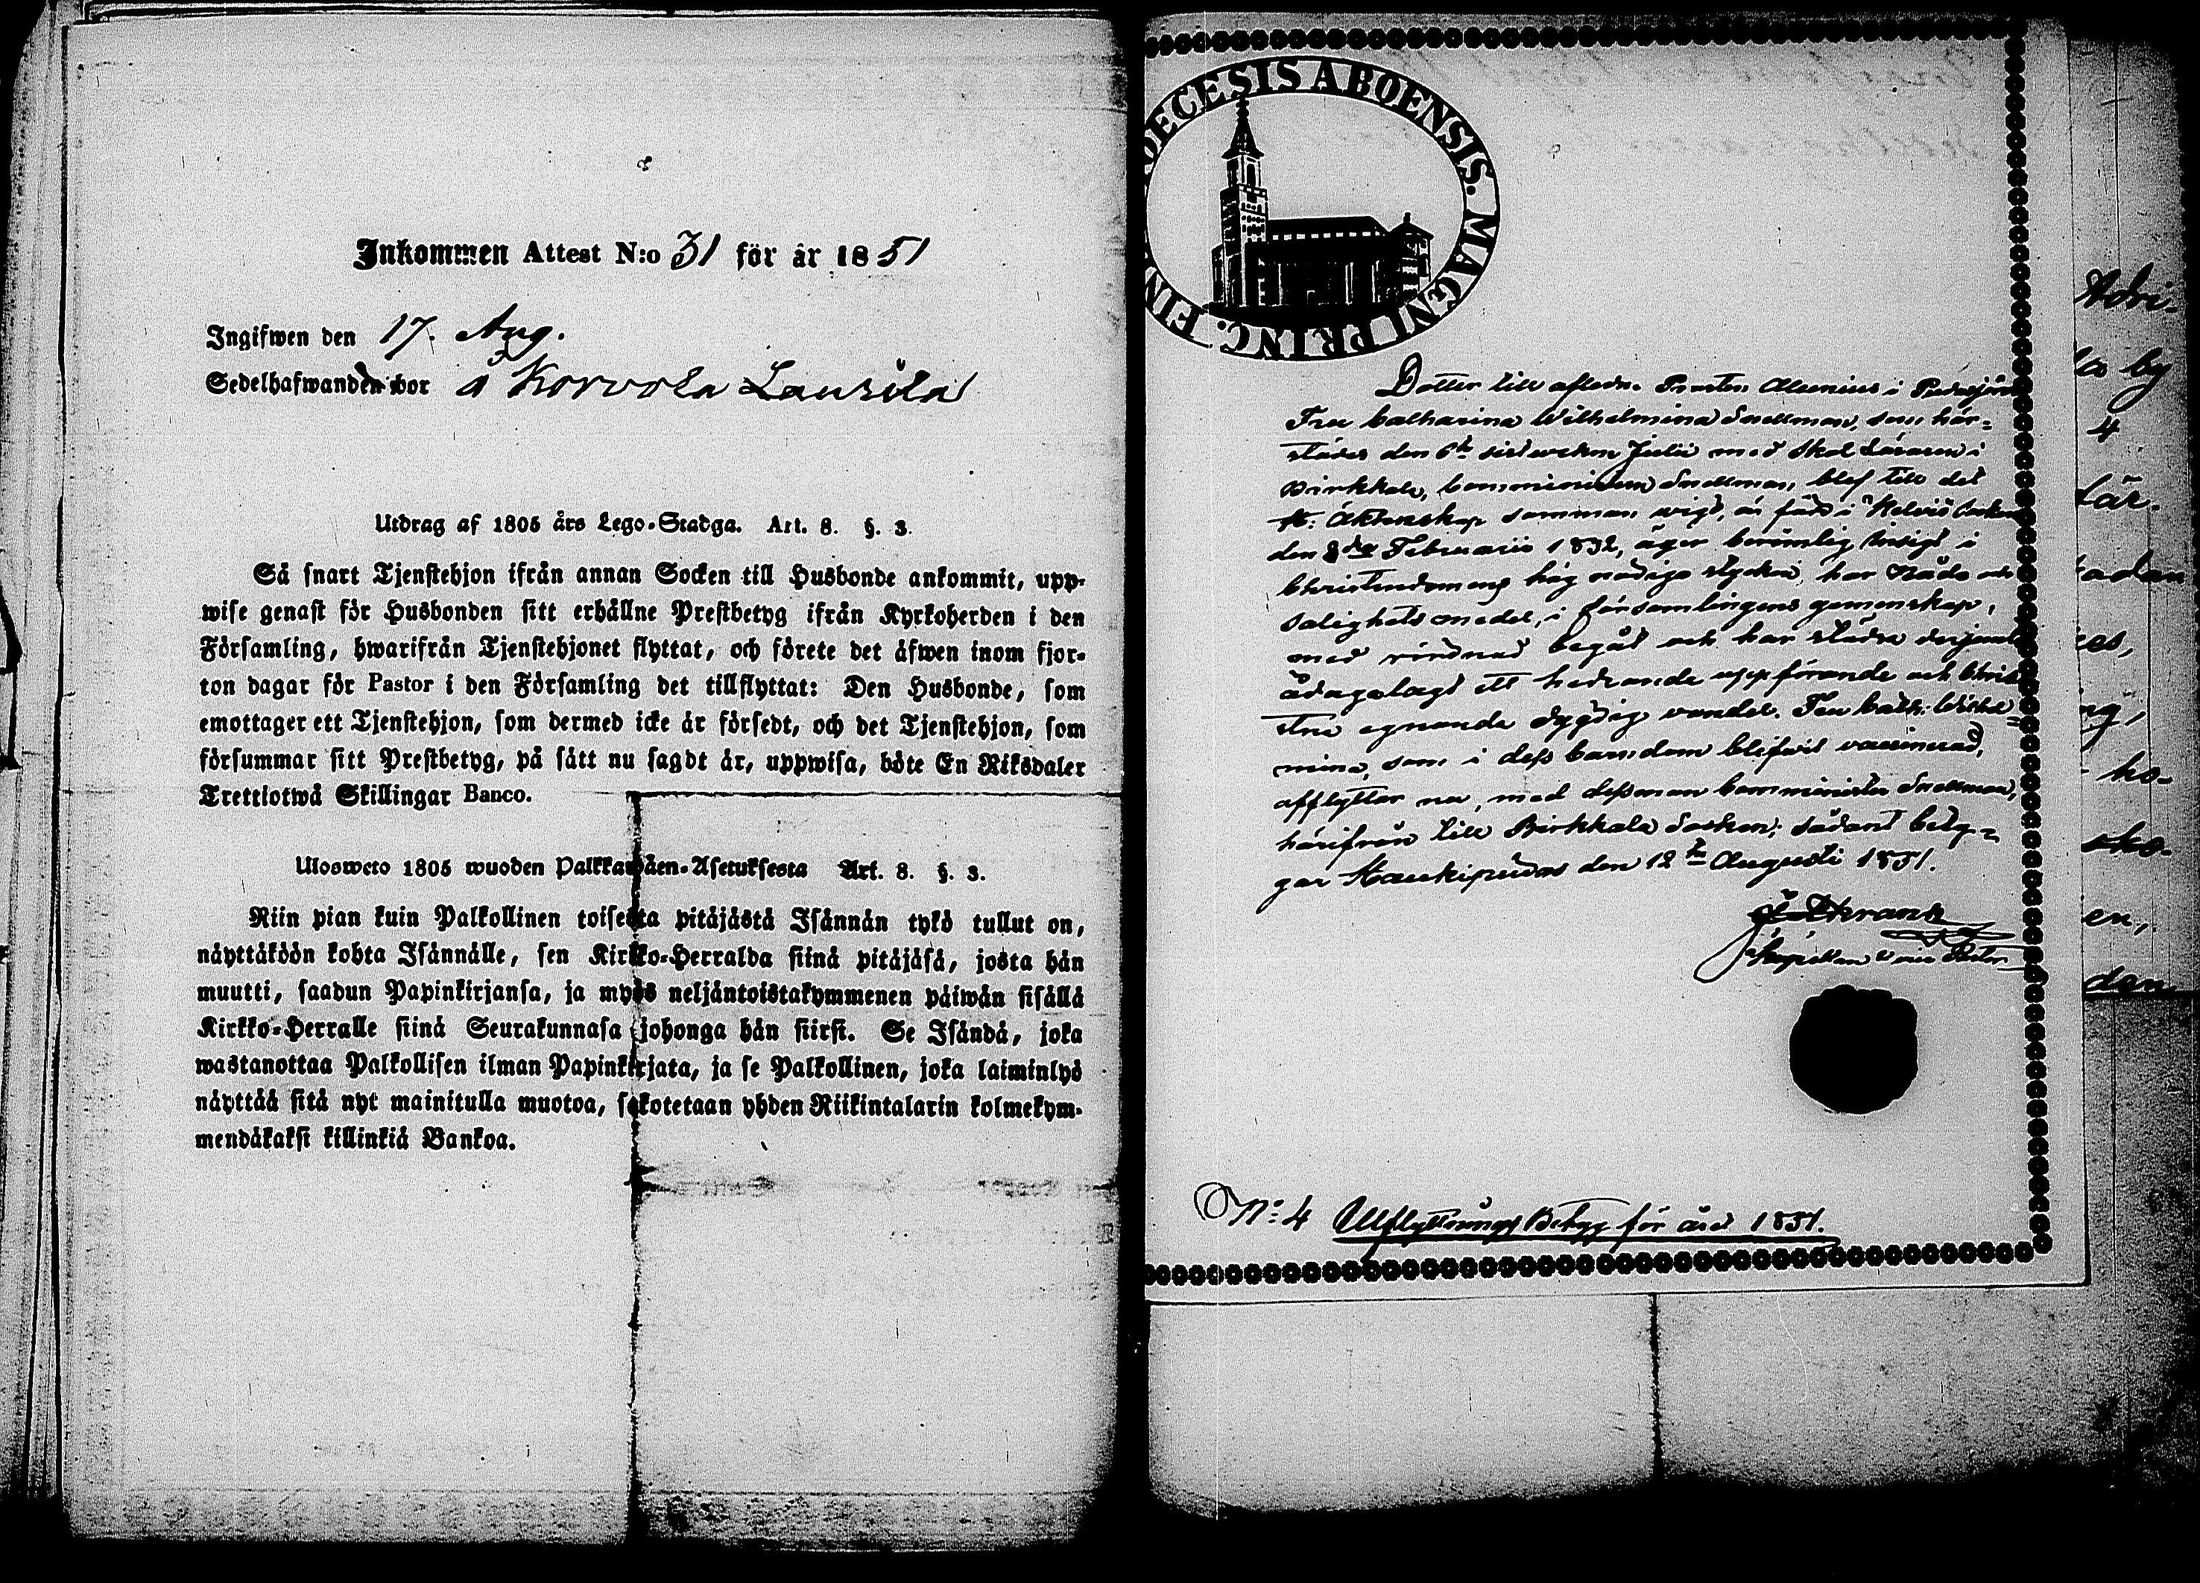 Inkommen Attest N:o 31 för år 1851
Ingifwen den 17. Aug.
Sedelhafwanden bor å Korvola Laurila
Utdrag af 1805 års Lego-Stadga. Art. 8. §. 3.
Så snart Tjenstehjon ifrån annan Socken till Husbonde ankommit, upp-
wise genast för Husbonden sitt erhållne Prestbetyg ifrån Kyrkoherden i den
Församling, hwarifrån Tjenstehjonet flyttat, och förete det åfwen inom fjor-
ton dagar för Pastor i den Församling det tillflyttat: Den Husbonde, som
emottager ett Tjenstehjon, som dermed icke år försedt, och det Tjenstehjon, som
försummar sitt Prestbetyg, på sått nu sagdt år, uppwisa, böte En Riksdaler
Trettiotwå Skillingar Banco.
Ulosweto 1805 wuoden Palkkawäen-Asetuksesta Art. 8. §. 3.
Niin pian kuin Palkollinen toisesta pitäjästä Isännän tykö tullut on,
näyttäköön kohta Isännälle, sen Kirkko-Herralda siinä pitäjäsä, josta hän
muutti, saadun Papinkirjansa, ja myös neljäntoistakymmenen päiwän sisällä
Kirkko-Herralle siinä Seurakunnasa johonga hän siirsi. Se Isändä, joka
wastanottaa Palkollisen ilman Papinkirjata, ja se Palkollinen, joka laiminlyö
näyttää sitä nyt mainitulla muotoa, sakotetaan yhden Riikintalarin kolmekym-
mendäkaksi killinkiä Bankoa.
DECESIS ABOENSIS. MAGNI PRINC. FIN
Dotter till afledn. Prosten Alcenius i
Fru Catharina Wilhelmina Snellman, som här-
städes den 6te sistwekne Julii med Skol Läraren i
Birkkala, Comministern Snellman, blef till det
H. Äktenskap samman wigd, är född i
den 8de Februarii 1832, äger berömlig insigt i
Christendomens högnödiga stycken, har Nåde och
salighets medel, i församlingens gemenskap,
med wördnad begått och har städse derjemte
ådagalagt ett hedrande uppförande och Chri
stne egnande dygdig vandel. Fru Cath: Wilhel-
mina, som i dess barndom blifvit vaccinerad,
afflyttar nu, med dess man Comminister Snellman,
härifrån till Birkkala Socken; sådant bety-
gar Haukipudas den 12te Augusti 1851.
Kapellan vice Pastor
No 4 Utflyttnings Betyg för året 1851.
Adri-
by
4
lär.
adan
es,
ng,
ho-
ska-
en,
den